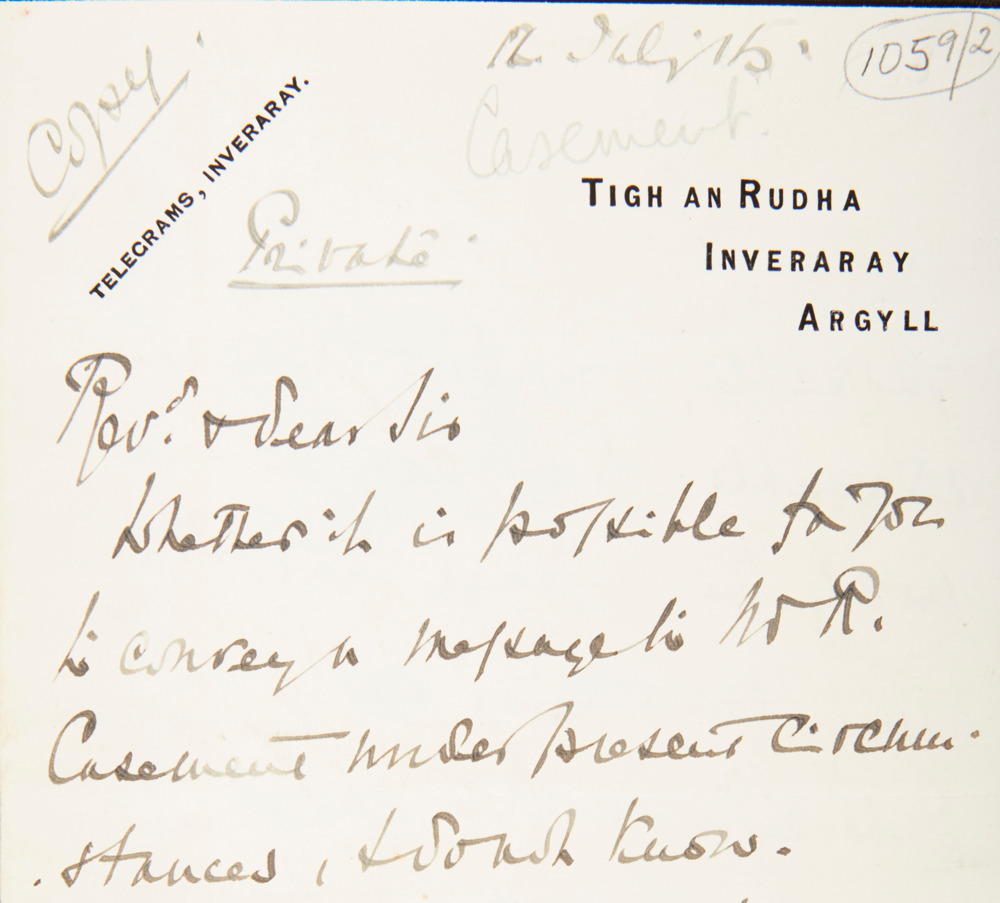 Copy.
12. July 15.
1059/2
Casement.
TELEGRAMS, INVERARAY.
Private.
TIGH AN RUDHA
INVERARAY
ARGYLL
Revd. & dear Sir
Whether it is possible for you
to convey a message to Mr R.
Casement under present circum-
stances, I do not know.